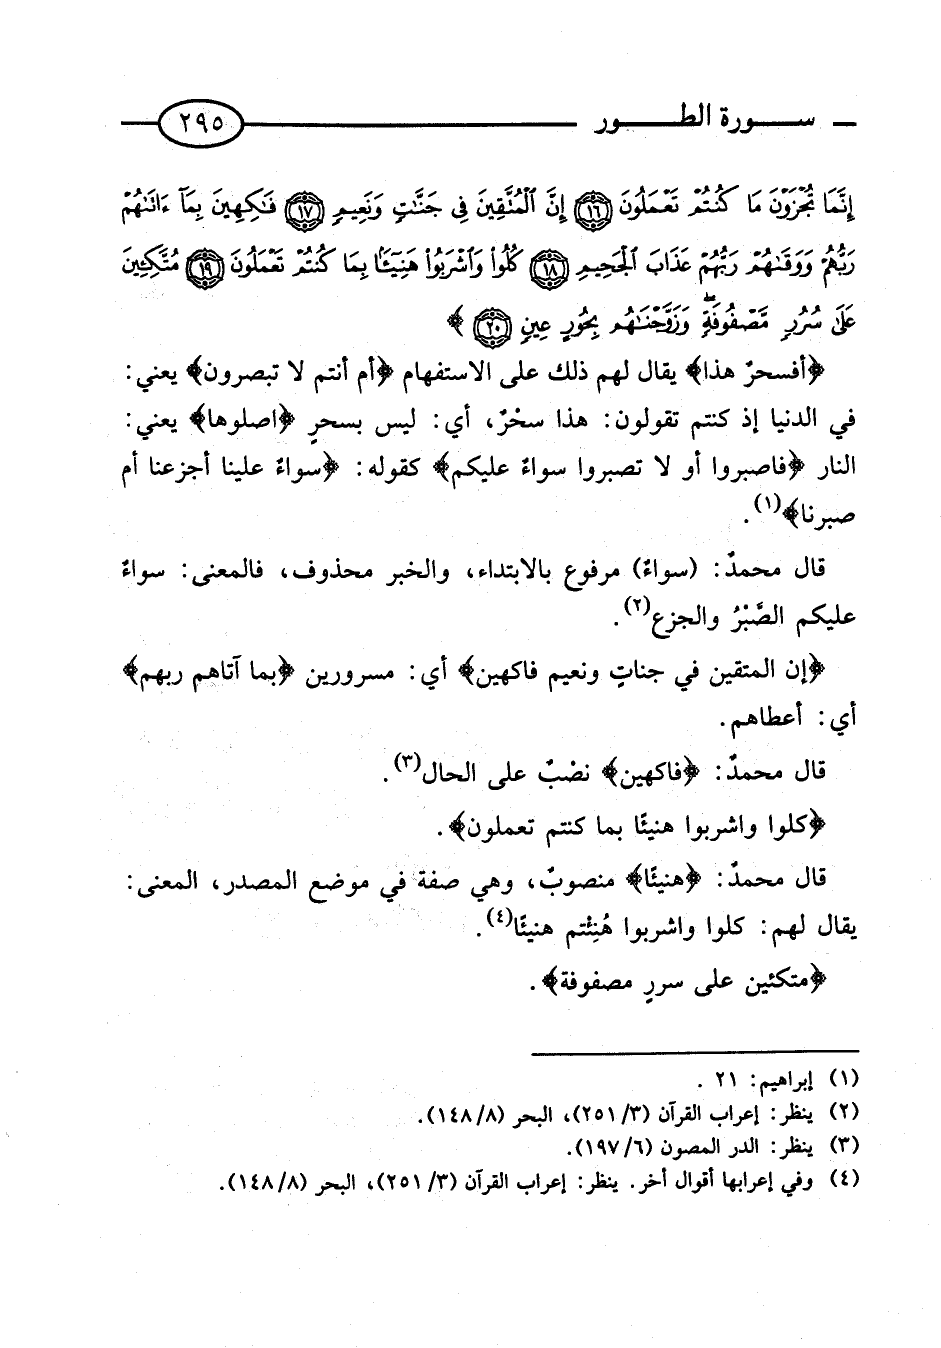 سورة الطور ٢٩٥
إِنَّمَا تُجْزَوْنَ مَا كُنتُمْ تَعْمَلُونَ ١٦ إِنَّ الْمُتَّقِينَ فِي جَنَّاتٍ وَنَعِيمٍ ١٧ فَاكِهِينَ بِمَا ءَاتَاهُمْ
رَبُّهُمْ وَوَقَاهُمْ رَبُّهُمْ عَذَابَ الْجَحِيمِ ١٨ كُلُوا وَاشْرَبُوا هَنِيئًا بِمَا كُنتُمْ تَعْمَلُونَ ١٩ مُتَّكِئِينَ
عَلَى سُرُرٍ مَّصْفُوفَةٍ وَزَوَّجْنَاهُم بِحُورٍ عِينٍ ٢٠ ﴾
﴿أفسحرٌ هذا﴾ يقال لهم ذلك على الاستفهام ﴿أم أنتم لا تبصرون﴾ يعني:
في الدنيا إذ كنتم تقولون: هذا سحْرٌ، أي: ليس بسحرٍ ﴿اصلوها﴾ يعني:
النار ﴿فاصبروا أو لا تصبروا سواءٌ عليكم﴾ كقوله: ﴿سواءٌ علينا أجزعنا أم
صبرنا﴾(١).
قال محمدٌ: (سواءٌ) مرفوع بالابتداء، والخبر محذوف، فالمعنى: سواءٌ
عليكم الصَّبْرُ والجزع(٢).
﴿إن المتقين في جناتٍ ونعيم فاكهين﴾ أي: مسرورين ﴿بما آتاهم ربهم﴾
أي: أعطاهم.
قال محمدٌ: ﴿فاكهين﴾ نصْبٌ على الحال(٣).
﴿كلوا واشربوا هنيئًا بما كنتم تعملون﴾.
قال محمدٌ: ﴿هنيئًا﴾ منصوبٌ، وهي صفة في موضع المصدر، المعنى:
يقال لهم: كلوا واشربوا هُنِئْتم هنيئًا(٤).
﴿متكئين على سررٍ مصفوفة﴾.
(١) إبراهيم: ٢١ .
(٢) ينظر: إعراب القرآن (٢٥١/٣)، البحر (١٤٨/٨).
(٣) ينظر: الدر المصون (١٩٧/٦).
(٤) وفي إعرابها أقوال أخر. ينظر: إعراب القرآن (٢٥١/٣)، البحر (١٤٨/٨).